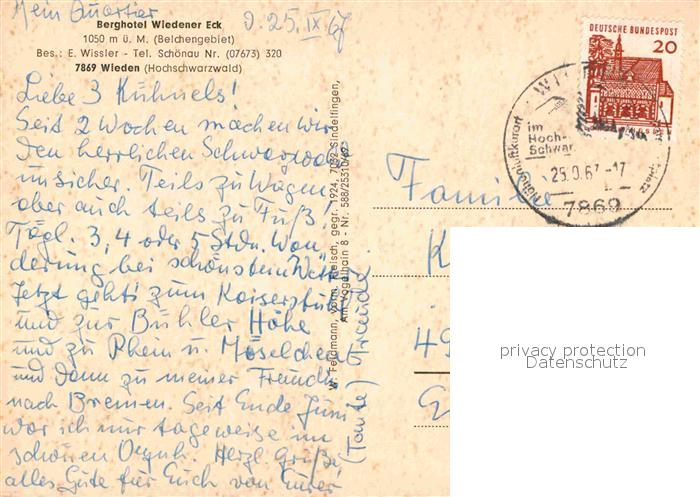 Mein Quartier
d. 25. IX. 67
Berghotel Wiedener Eck
1050 m ü. M. (Belchengebiet)
Bes.: E. Wissler - Tel. Schönau Nr. (07673) 320
7869 Wieden (Hochschwarzwald)
Liebe 3 Kühnels!
Seit 2 Wochen machen wir
den herrlichen Schwarzwald
unsicher. Teils zu Wagen
aber auch teils zu Fuß,
Tägl. 3, 4 oder 5 Stdn. Wan
derung bei schönstem Wetter
Jetzt gehts zum Kaiserstuhl
und zur Bühler Höhe
und zu Rhein u. Möselchen
und dann zu meiner Freundin
nach Bremen. Seit Ende Juni
war ich nur tageweise im
schönen Oeynh. Herzl. Grüße
alles Gute für Euch von Eurer
(Tante) Friedel
W. Feldmann, vorm. Metsch, gegr. 1924, 7032 Sindelfingen,
Am Vogelhain 8 - Nr. 588/25310/67
DEUTSCHE BUNDESPOST
20
im
Hoch-
Schwar
25.9.67-17
7869
Familie
K
49
privacy protection
Datenschutz